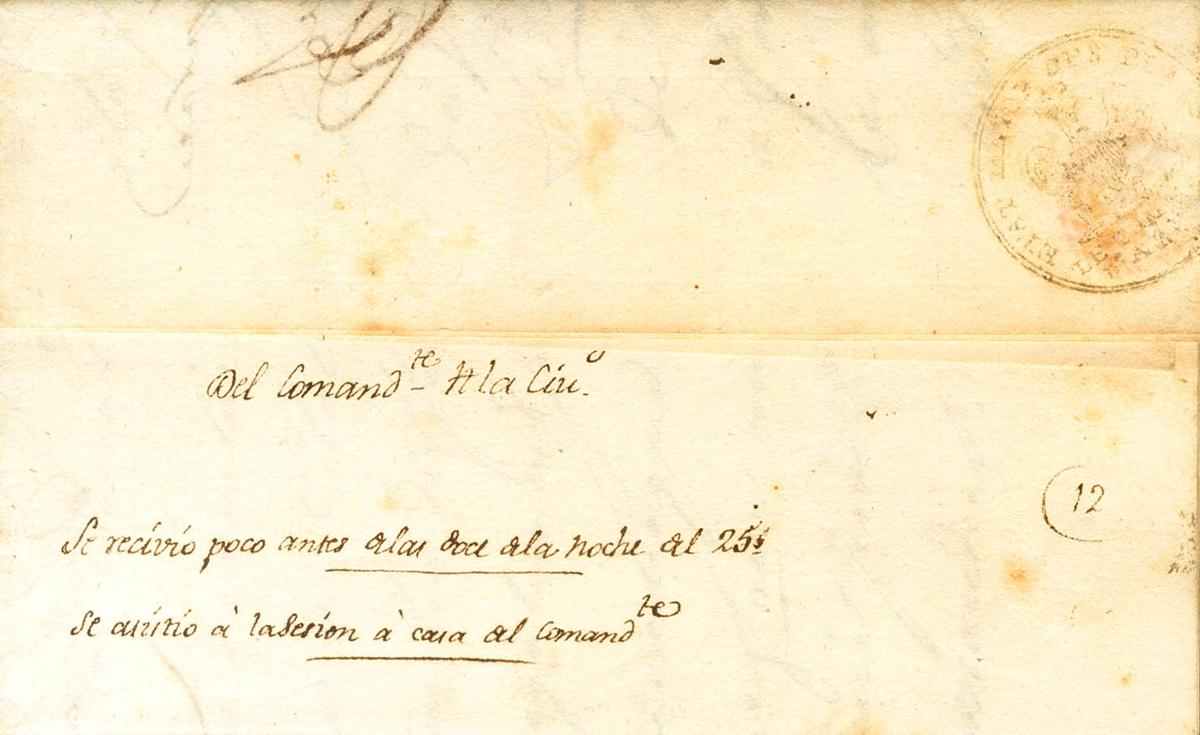 Del Comand.te de la Ciu.d
12
Se recivio poco antes de las doce de la noche del 25,,
Se asistio à la Sesion à casa del Comand.te